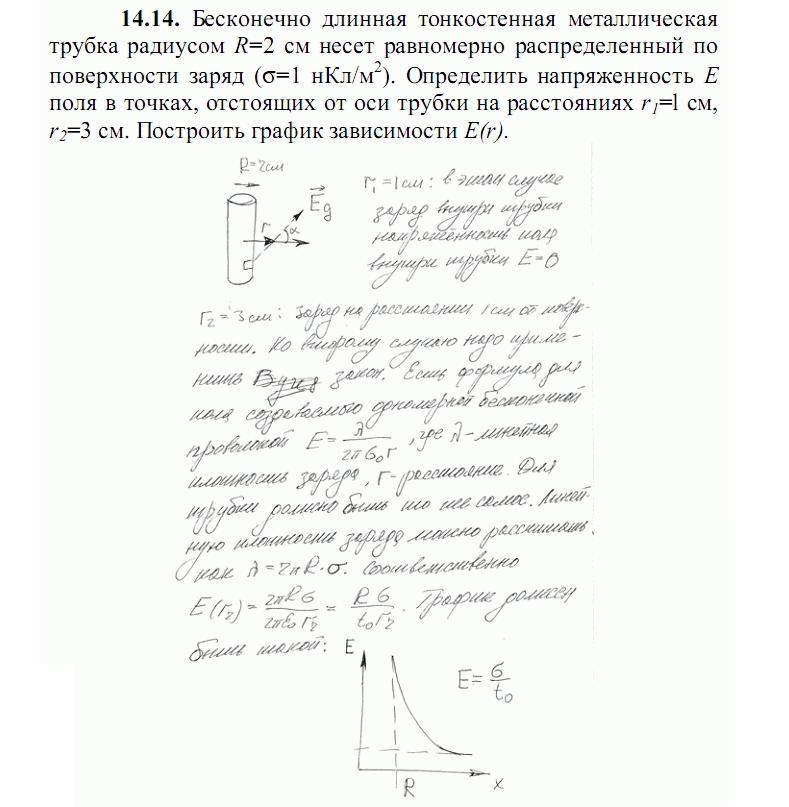 14.14. Бесконечно длинная тонкостенная металлическая
трубка радиусом R=2 см несет равномерно распределенный по
поверхности заряд (σ=1 нКл/м²). Определить напряженность E
поля в точках, отстоящих от оси трубки на расстояниях r₁=1 см,
r₂=3 см. Построить график зависимости E(r).
R=2см
r
α
E⃗g
r₁=1см: в этом случае
заряд внутри трубки
напряжённость поля
внутри трубки E=0
r₂=3см: заряд на расстоянии 1см от поверх-
ности. Ко второму случаю надо приме-
нить закон. Есть формула для
поля создаваемого одномерной бесконечной
проволокой E=λ/2πε₀r, где λ-линейная
плотность заряда, r-расстояние. Для
трубки должно быть то же самое. Линей-
ную плотность заряда можно рассчитать
как λ=2πR·σ. Соответственно
E(r₂)=2πRσ/2πε₀r₂=Rσ/ε₀r₂. График должен
быть такой:
E
E=σ/ε₀
R
x